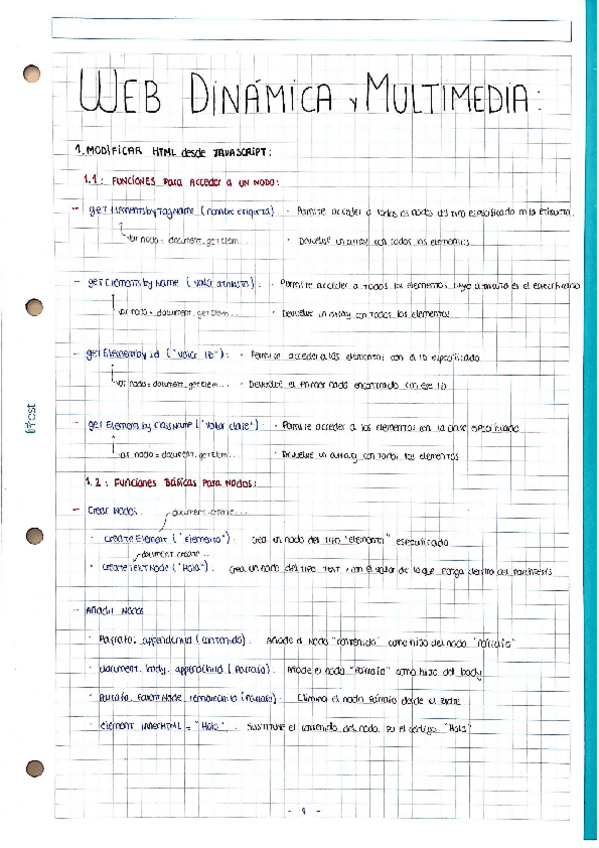 WEB DINÁMICA Y MULTIMEDIA:
1. MODIFICAR HTML desde JAVASCRIPT:
1.1: FUNCIONES Para Acceder a UN NODO:
- getElementsbyTagName (nombre etiqueta) · Permite acceder a todos los nodos del tipo especificado en la etiqueta.
var nodo = document.getElem... · Devuelve un array con todos los elementos
- getElementsbyName (valor atributo): · Permite acceder a todos los elementos cuyo atributo es el especificado
var nodo = document.getElem... · Devuelve un array con todos los elementos
- getElementbyid ("valor ID"): · Permite acceder a los elementos con el ID especificado
var nodo = document.getElem... · Devuelve el primer nodo encontrado con ese ID
- getElementsbyClassName ("valor clase") · Permite acceder a los elementos con la clase especificada
var nodo = document.getElem... · Devuelve un array con todos los elementos
fipost
1.2: Funciones Básicas Para Nodos:
- Crear Nodos. document.create...
· createElement ("elemento"). Crea un nodo del tipo "elemento" especificado
document.create...
· createTextNode ("Hola"). Crea un nodo del tipo text con el valor de lo que ponga dentro del paréntesis
- Añadir Nodos
· Parrafo.appendChild (contenido). Añade el nodo "contenido" como hijo del nodo "Párrafo"
· document.body.appendChild (Parrafo). Añade el nodo "Párrafo" como hijo del body
· Parrafo.parentNode.removeChild (Parrafo). Elimina el nodo Párrafo desde el padre
· element.innerHTML = "Hola". Sustituye el contenido del nodo por el código "Hola"
- 1 -